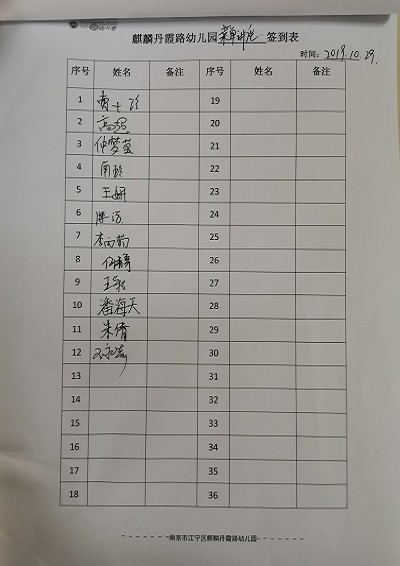 麒麟丹霞路幼儿园 签到表
时间: 2019.10.29.
序号 姓名 备注 序号 姓名 备注
1 19
2 高 20
3 仲梦莹 21
4 22
5 王妍 23
6 24
7 25
8 26
9 王 27
10 潘海天 28
11 朱倩 29
12 30
13 31
14 32
15 33
16 34
17 35
18 36
南京市江宁区麒麟丹霞路幼儿园